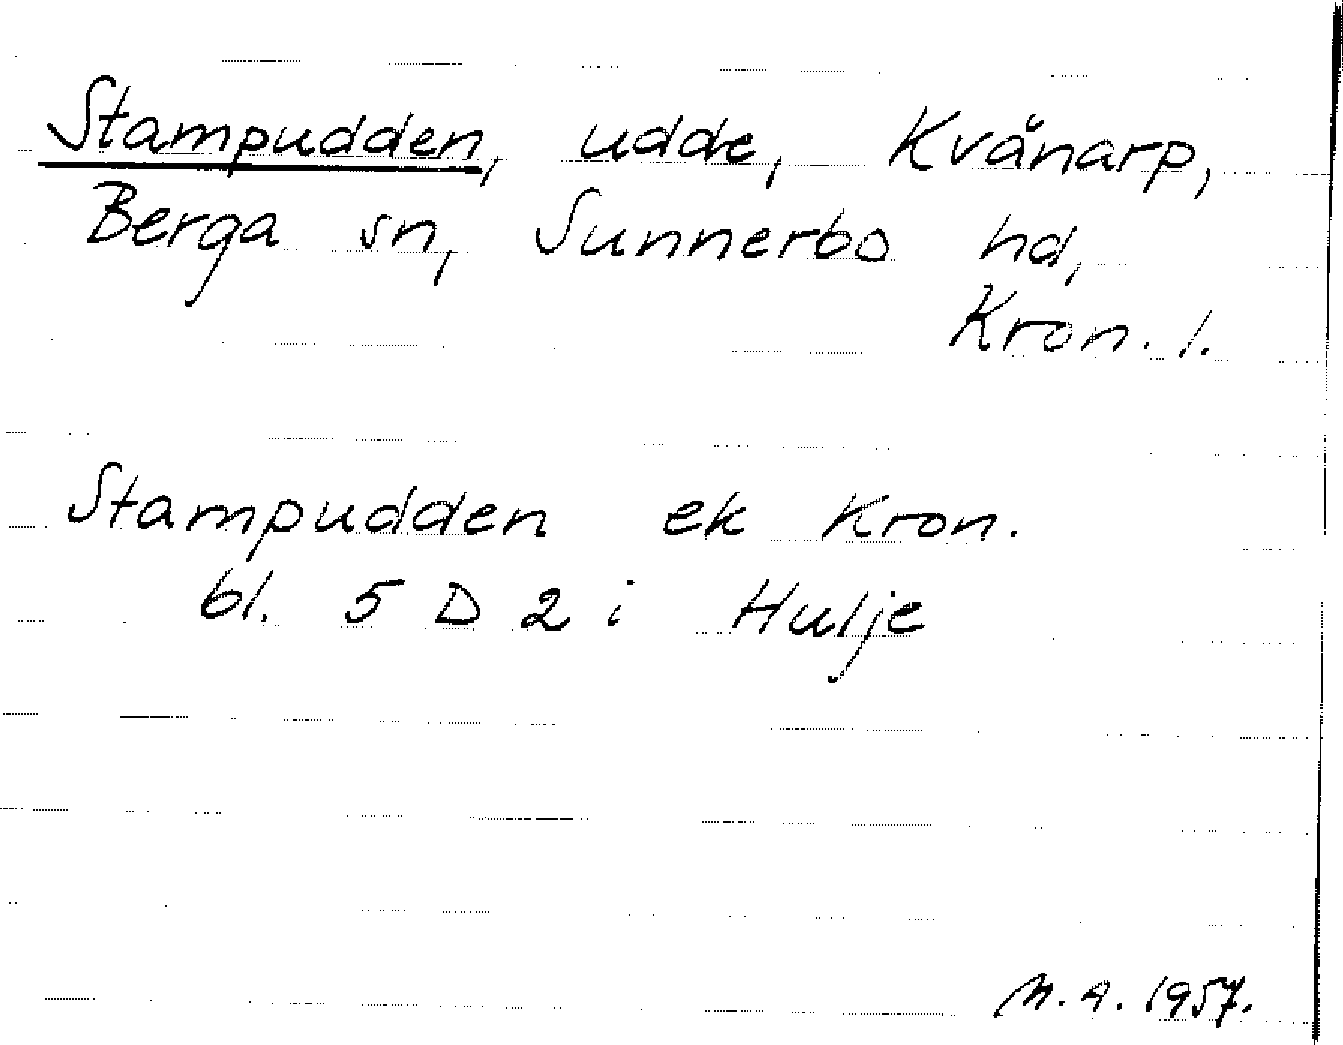 Stampudden, udde, Kvånarp,
Berga sn, Sunnerbo hd,
Kron. l.
Stampudden ek Kron.
bl. 5 D 2 i Hulje
M. A. 1957.